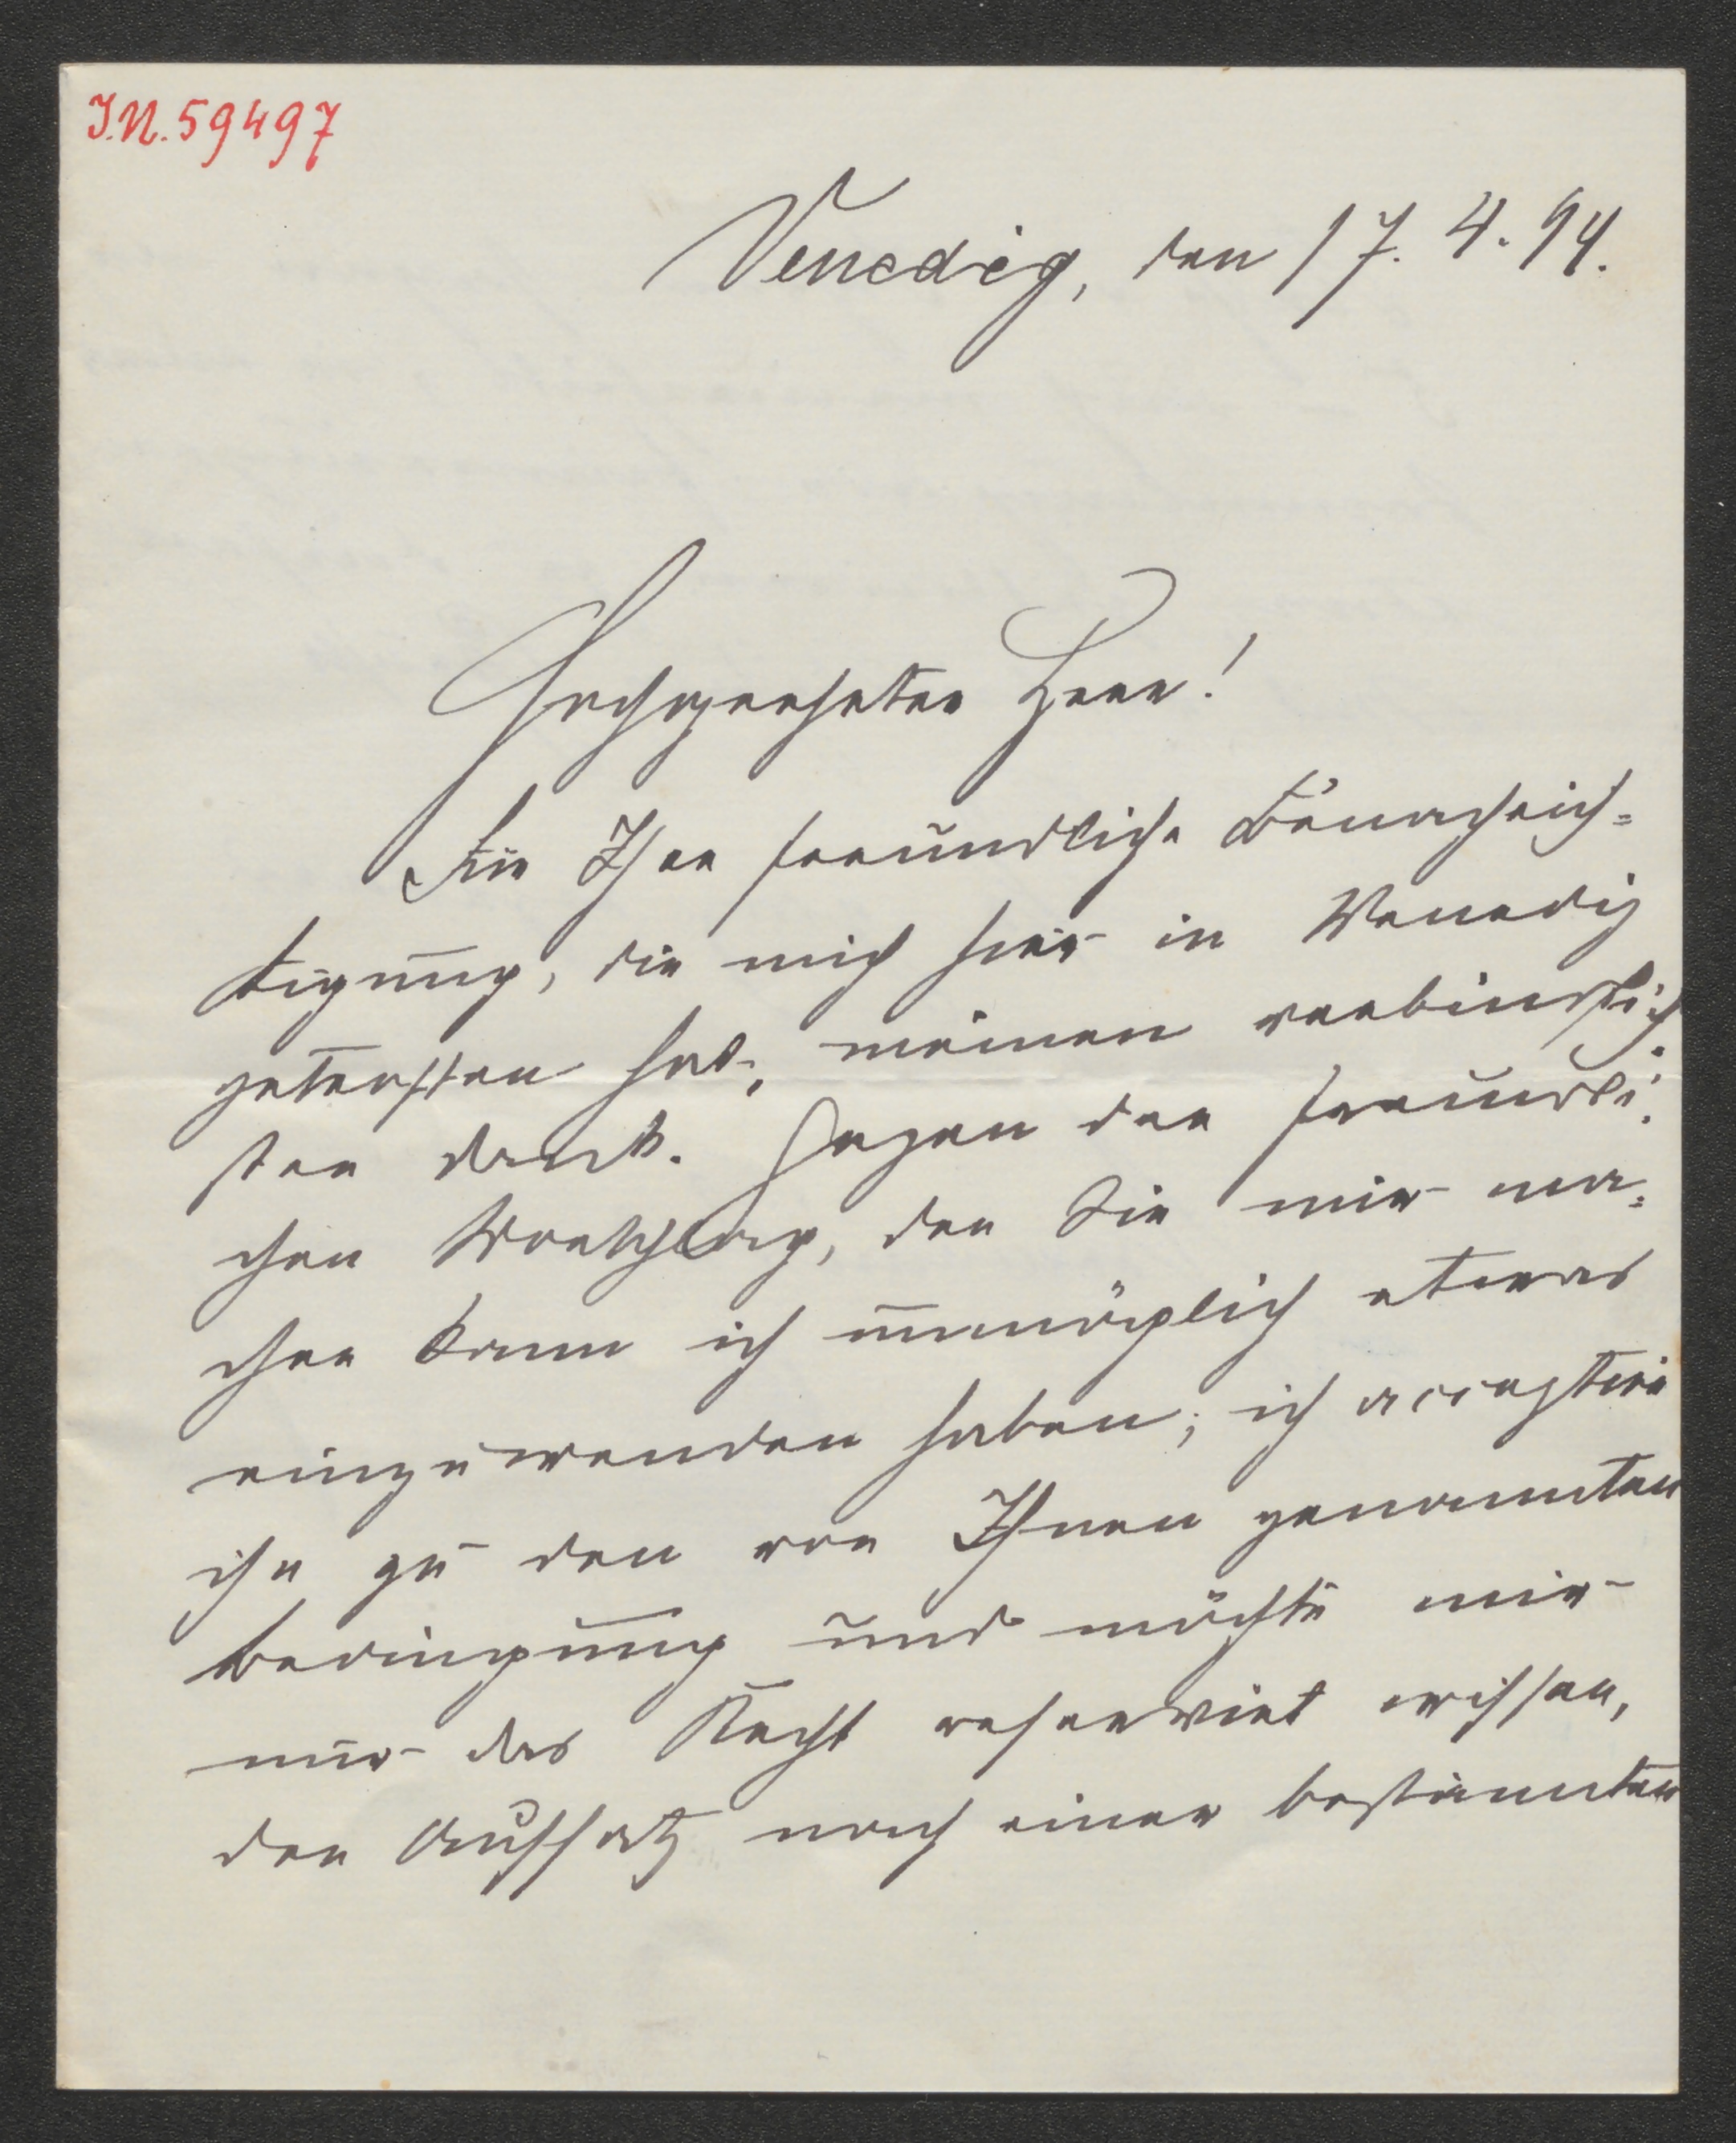 J.N. 59497
Venedig, den 17. 4. 94.
Hochgeehrter Herr!
Für Ihre freundliche Benachrich=
tigung, die mich hier in Venedig
getroffen hat, meinen verbindlich
sten Dank. Gegen den freundli
chen Vorschlag, den Sie mir ma=
chen kann ich unmöglich etwas
einzuwenden haben; ich acceptire
ihn zu den von Ihnen genannten
Bedingung und möchte mir
nur das Recht reservirt wissen,
den Aufsatz nach einer bestimmten